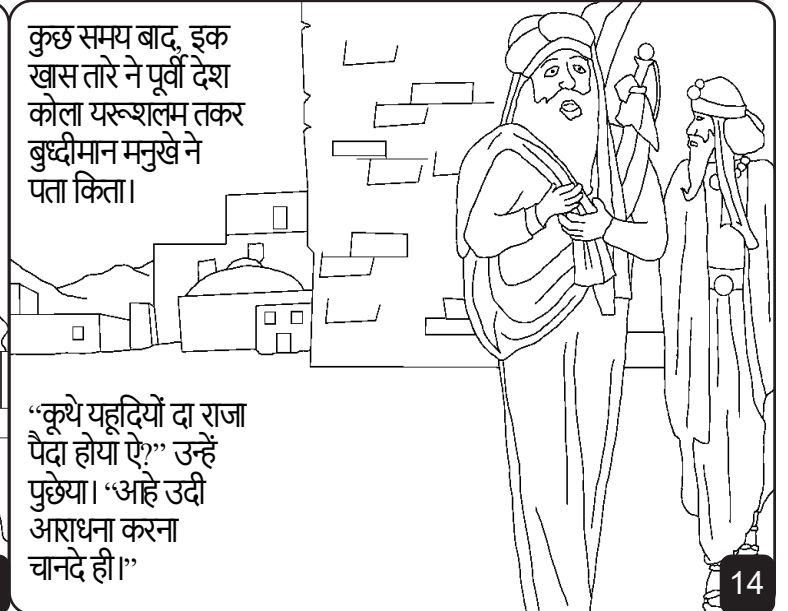 कुछ समय बाद, इक
खास तारे ने पूर्वी देश
कोला यरूशलम तकर
बुध्दीमान मनुखे ने
पता किता।
“कूथे यहूदियों दा राजा
पैदा होया ऐ?” उन्हें
पुछेया। “आहे उदी
आराधना करना
चानदे ही।”
14